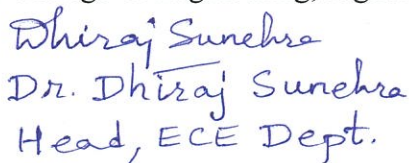 Dhiraj Sunehra
Dr. Dhiraj Sunehra
Head, ECE Dept.